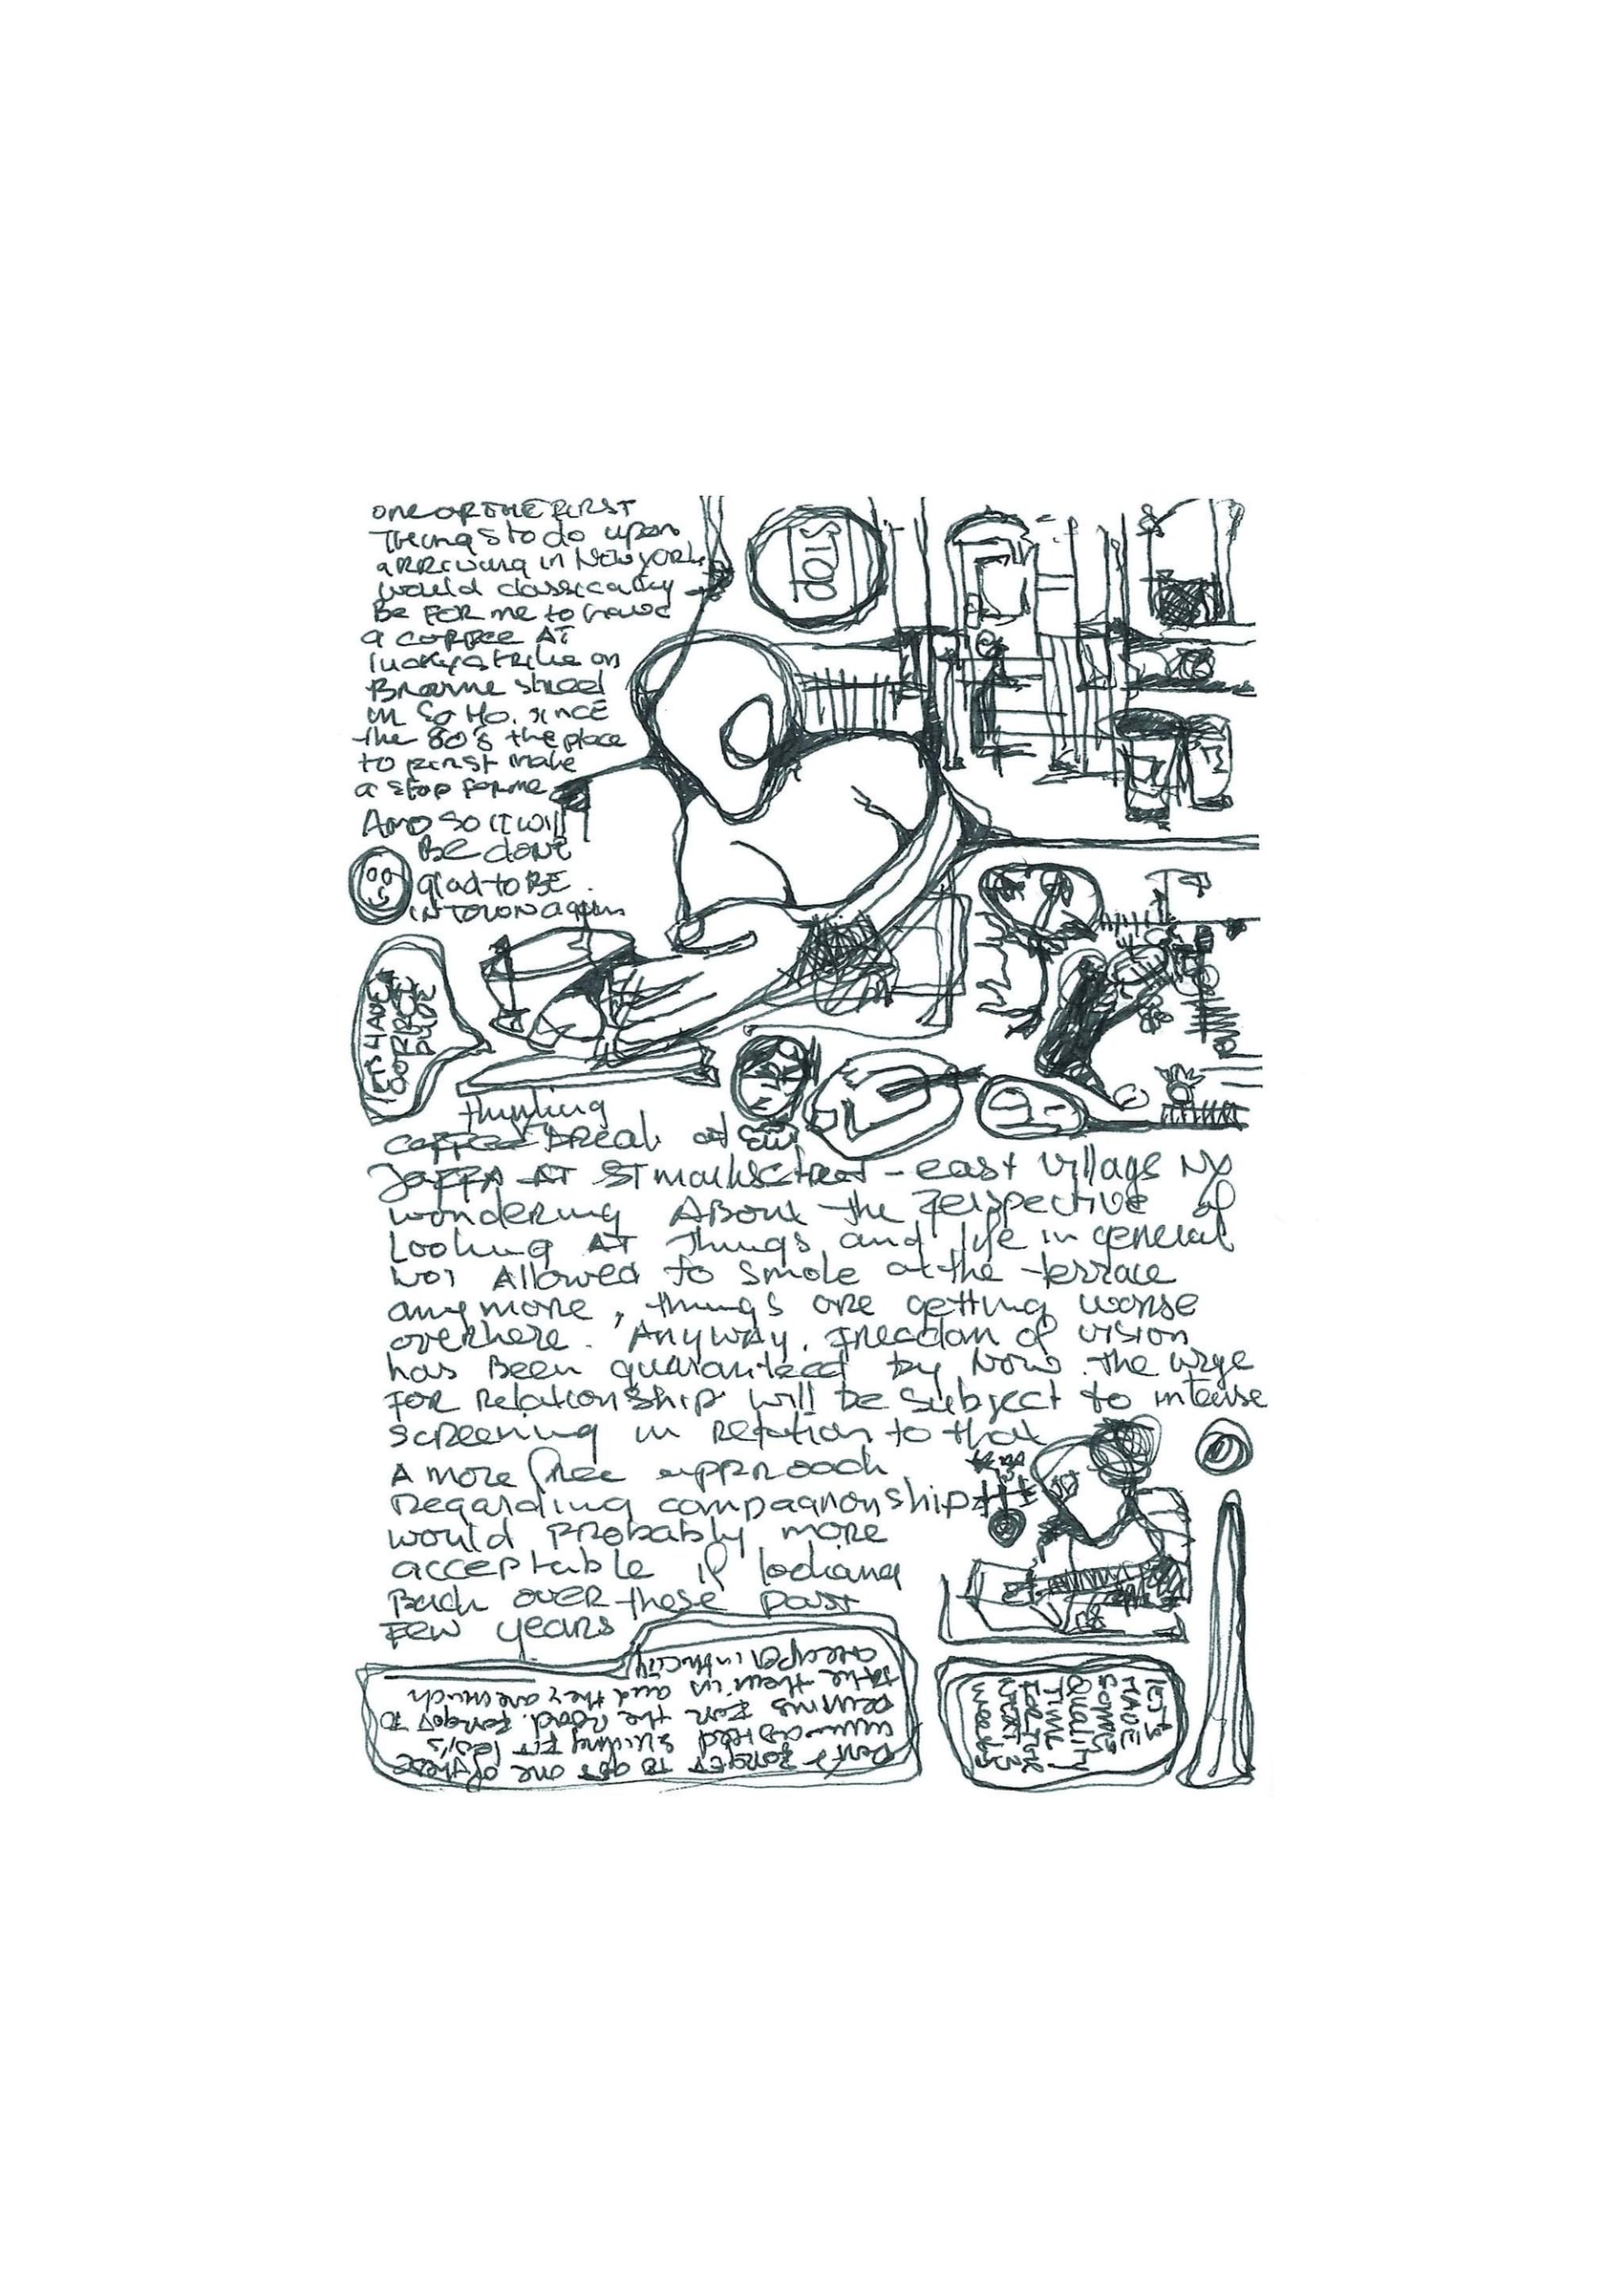 ONE OF THE FIRST
Things to do upon
ARRIVING in NEW YORK
would classically
BE FOR me to have
a COFFEE AT
lucky strike on
Broome street
in SoHo. SINCE
the 80's the place
to first make
a stop for me
AND SO IT will
BE done
glad to BE
IN TOWN again
STOP
LET'S HAVE A
COFFEE
thinking
COFFEE break at
JAFFA AT ST marks street - east village NY
wondering About the perspective of
Looking AT Things and life in general
not Allowed to smoke at the terrace
anymore, things are getting worse
overhere. Anyway, freedom of vision
has Been guaranteed by Now the urge
FOR Relationship will be subject to intense
screening in Relation to that
A more free approach
Regarding compagnonship
would probably more
acceptable if looking
Back over these past
FEW years
Don't FORGET TO get one of these
sliding FIT
FOR the Road. Forgot TO
take them in and they are much
cheaper in the city
LET'S
HAVE
SOME
QUALITY
TIME
FOR THE
NEXT
weeks